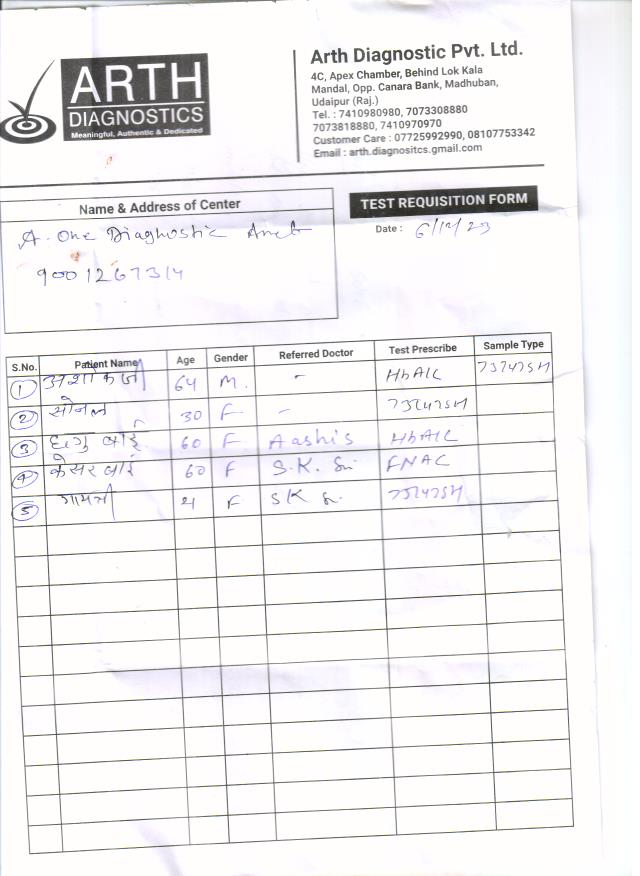 ARTH
DIAGNOSTICS
Meaningful, Authentic & Dedicated
Arth Diagnostic Pvt. Ltd.
4C, Apex Chamber, Behind Lok Kala
Mandal, Opp. Canara Bank, Madhuban,
Udaipur (Raj.)
Tel. : 7410980980, 7073308880
7073818880, 7410970970
Customer Care : 07725992990, 08107753342
Email : arth.diagnositcs.gmail.com
Name & Address of Center
A. One Diagnostic Amet
9001267314
TEST REQUISITION FORM
Date : 6/12/23
S.No. Patient Name Age Gender Referred Doctor Test Prescribe Sample Type
1 अशोक जी 64 M. - HbA1C
2 सोनल 30 F -
3 बाई 60 F Aashis HbA1C
4 केसर बाई 60 F S.K. FNAC
5 गायत्री F SK